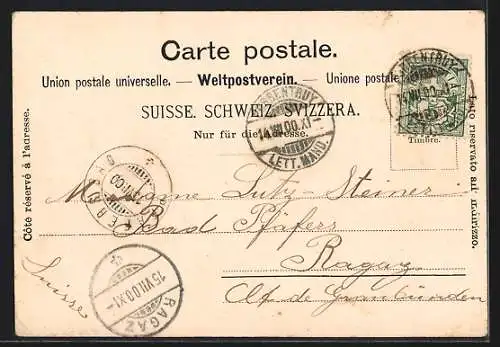 Carte postale.
Union postale universelle. — Weltpostverein. — Unione postale
SUISSE. SCHWEIZ. SVIZZERA.
Nur für die Adresse.
Côte réservé à l'adresse.
Lato riservato all' indirizzo.
Timbre.
PORRENTRUY
14.VII.00.XI-
LETT. MAND.
PORRENTRUY
14.VII.00.XI-
Madame Lutz-Steiner
Bad Pfäfers
Ragaz
Ct. de Graubünden
Suisse
RAGAZ
15.VII.00.XI-